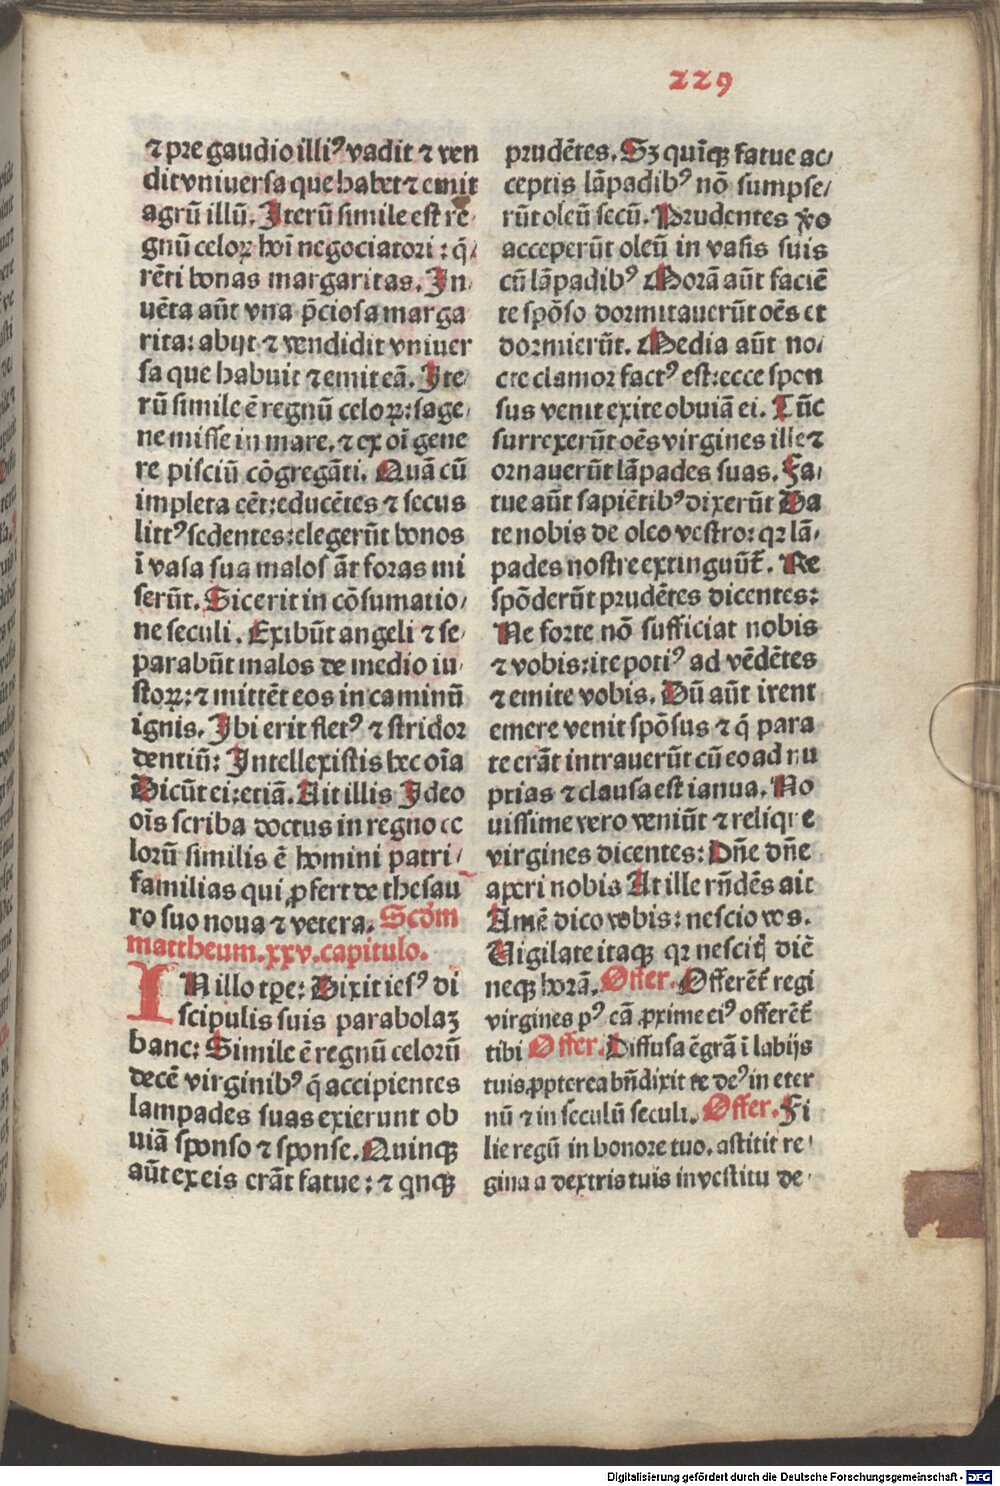 229
⁊ pre gaudio illiꝰ vadit ⁊ ven
dit vniuersa que habet ⁊ emit
agrū illū. Iterū simile est re-
gnū celoꝝ hoī negociatori: q̄-
rēti bonas margaritas. In-
uēta aūt vna p̄ciosa marga
rita: abijt ⁊ vendidit vniuer
sa que habuit ⁊ emit eā. Ite-
rū simile ē regnū celoꝝ: sage-
ne misse in mare. ⁊ ex oī gene
re pisciū cōgregāti. Quā cū
impleta eēt: educētes ⁊ secus
littꝰ sedentes: elegerūt bonos
ī vasa sua malos āt foras mi
serūt. Sic erit in cōsumatio-
ne seculi. Exibūt angeli ⁊ se-
parabūt malos de medio iu-
stoꝝ: ⁊ mittēt eos in caminū
ignis. Ibi erit fletꝰ ⁊ stridor
dentiū: Intellexistis hec oīa
Dicūt ei: etiā. Ait illis Ideo
oīs scriba doctus in regno ce
lorū similis ē homini patri-
familias qui ꝓfert de thesau
ro suo noua ⁊ vetera. Scd̄m
mattheum. xxv. capitulo.
IN illo tp̄e: Dixit iesꝰ di
scipulis suis parabolaꝫ
hanc: Simile ē regnū celorū
decē virginibꝰ q̄ accipientes
lampades suas exierunt ob
uiā sponso ⁊ sponse. Quinqꝫ
aūt ex eis erāt fatue: ⁊ qnqꝫ
prudētes. Sꝫ quīqꝫ fatue ac-
ceptis lāpadibꝰ nō sumpse-
rūt oleū secū. Prudentes v̊o
acceperūt oleū in vasis suis
cū lāpadibꝰ Morā aūt faciē
te spōso dormitauerūt oēs et
dormierūt. Media aūt no-
cte clamor factꝰ est: ecce spon
sus venit exite obuiā ei. Tūc
surrexerūt oēs virgines ille ⁊
ornauerūt lāpades suas. Fa-
tue aūt sapiētibꝰ dixerūt Da
te nobis de oleo vestro: qꝛ lā-
pades nostre extinguūt̄. Re
spōderūt prudētes dicentes:
Ne forte nō sufficiat nobis
⁊ vobis: ite potiꝰ ad vēdētes
⁊ emite vobis. Dū aūt irent
emere venit spōsus ⁊ q̄ para
te erāt intrauerūt cū eo ad nu
ptias ⁊ clausa est ianua. No
uissime vero veniūt ⁊ relique
virgines dicentes: Dn̄e dn̄e
aperi nobis At ille rn̄dēs ait
Amē dico vobis: nescio vos.
Uigilate itaqꝫ qꝛ nescitꝭ diē
neqꝫ horā. Offer. Offerēt̄ regi
virgines pꝰ eā ꝓxime eiꝰ offerēt̄
tibi Offer. Diffusa ē grā ī labijs
tuis ꝓpterea bn̄dixit te deꝰ in eter
nū ⁊ in seculū seculi. Offer. Fi
lie regū in honore tuo. astitit re-
gina a dextris tuis in vestitu de-
Digitalisierung gefördert durch die Deutsche Forschungsgemeinschaft - DFG